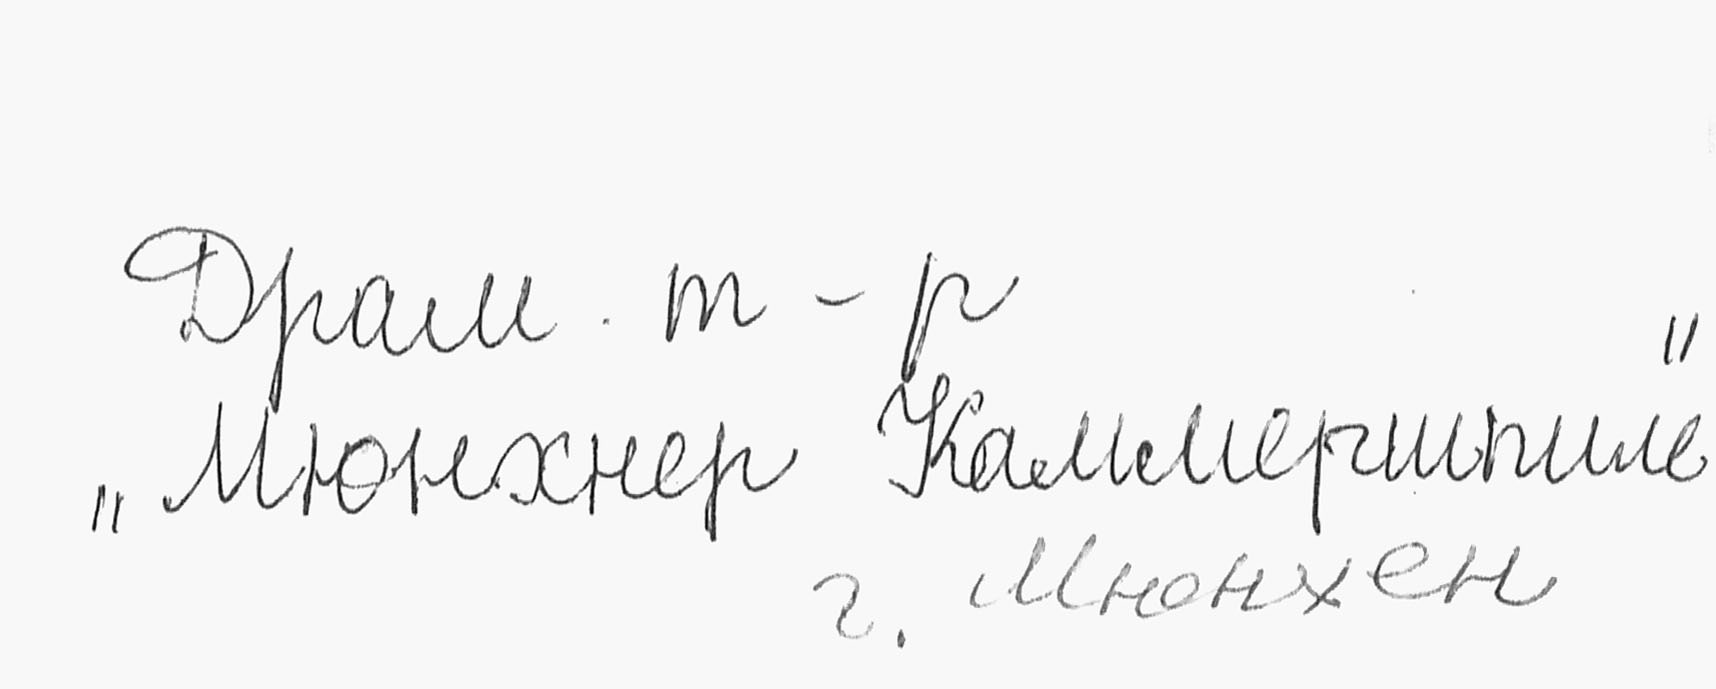 Драм. т-р
„Мюнхнер Каммершпиле"
г. Мюнхен